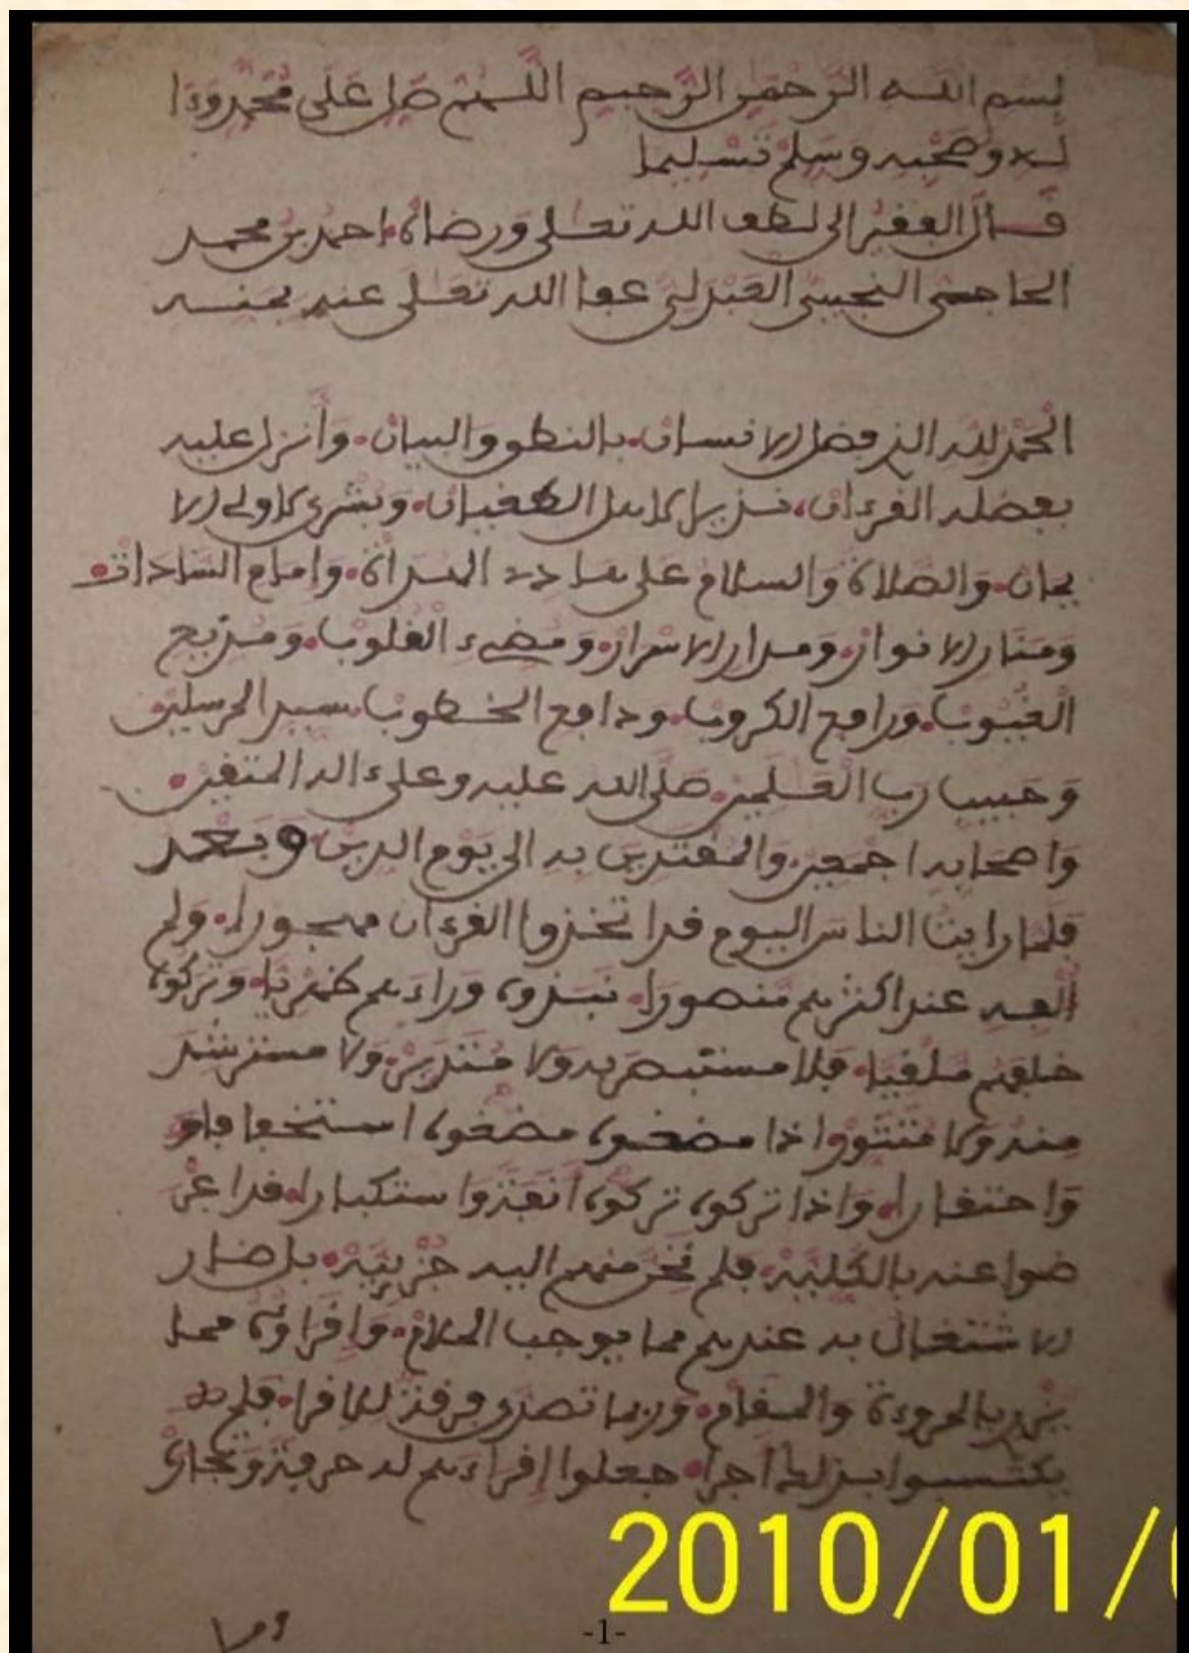 بسم الله الرحمن الرحيم اللهم صل على محمد وءا
له وصحبه وسلم تسليما
قال الفقير الى لطف الله تعلى ورضاه احمد بن محمد
الحاجي التجيبي عفا الله تعلى عنه بمنه
الحمد لله الذي فضل الانسان بالنطق والبيان وأنزل عليه
بفضله القرءان نذيرا لاهل الطغيان وبشرى لاولى الا
يمان والصلاة والسلام على الهداة وامام السادات
ومنار الانوار ومدار الاسرار ومضيء القلوب ومزيح
الغيوب ورافع الكروب ودافع الخطوب سيد المرسلين
وحبيب رب العلمين صلى الله عليه وعلى ءاله المتقين
واصحابه اجمعين والمقتدين به الى يوم الدين وبعد
فلما رايت الناس اليوم قد اتخذوا القرءان مهجورا ولم
الفه عند اكثرهم منصورا نبذوه وراءهم ظهريا وتركوه
خلفهم ملقيا فلا مستبصر به ولا متدبر ولا مسترشد
منه ولا واذا استخفافا و
واحتقارا واذا تركوه تركوه واستكبارا قد اعر
ضوا عنه بالكلية فلم منهم اليه جزئية بل صار
الاشتغال به عندهم مما يوجب الملام وإقراؤه مما
يزري بالمروءة والمقام وربما تصدى فرقة للاقرا فلم
يكتسبوا بذلك أجرا جعلوا إقراءهم له حرفة وتجار
وصا
2010/01/0
-1-